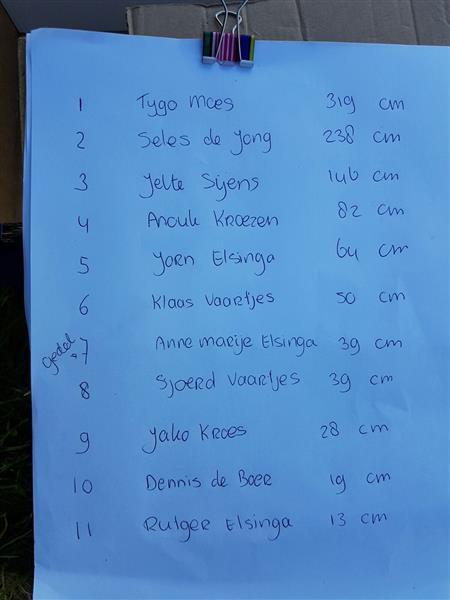 1 Tygo Moes 319 cm
2 Seles de Jong 238 cm
3 Jelte Sijens 146 cm
4 Anouk Kroezen 82 cm
5 Jorn Elsinga 64 cm
6 Klaas Vaartjes 50 cm
gedeld 7 Anne marije Elsinga 39 cm
8 Sjoerd Vaartjes 39 cm
9 Jako Kroes 28 cm
10 Dennis de Boer 19 cm
11 Rutger Elsinga 13 cm